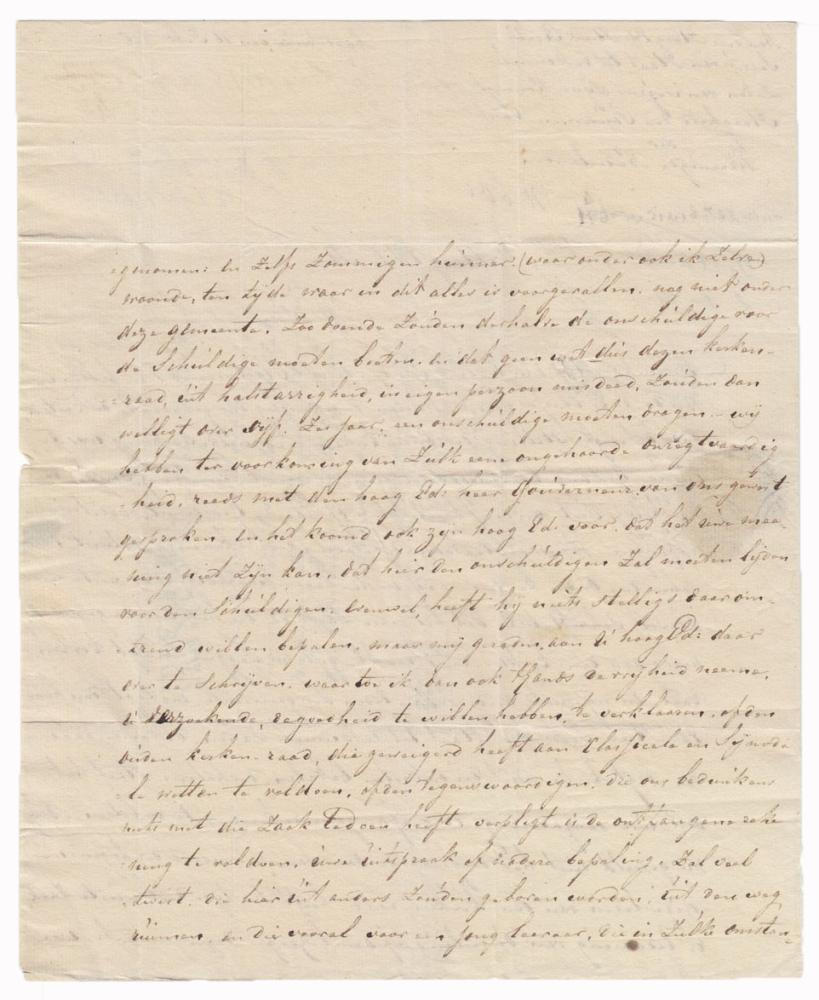 genomen: En Zelfs Zommigen hunner (waar onder ook ik Zelve)
woonde, ten tyde waar in dit alles is voorgevallen, nog niet onder
deze gemeente. Zoo doende Zouden derhalve de onschuldige voor
de Schuldige moeten boeten. en dat geen wat dús dezen kerken-
raad, uit halstarrigheid, in eigen perzoon misdeed, Zouden dan
welligt over vyf, Zes jaar, een onschuldige moeten dragen – wij
hebben ter voorkoming van Zulk eene ongehoorde onregtvaardig
heid, reeds met den hoog Ed: heer Gouverneur van ons gewest
gesproken en het koomd ook zyn hoog Ed: voor, dat het uwe mee-
ning niet Zyn kan, dat hier den onschuldigen Zal moeten lijden
voor den Schuldigen. Evenwel, heeft hij niets stelligs daarom-
trend willen bepalen, maar mij geraden, aan U hoog Ed: daar
over te Schrijven. waar toe ik dan ook thands de vrijheid neeme,
U verzoekende, de goedheid te willen hebben, te verklaaren, of den
ouden kerken-raad, die geweigerd heeft aan Classicale en Synoda
le wetten te voldoen, of den tegenswoordigen, die ons bedunkens
niets met die Zaak te doen heeft, verpligt is de ontfangene reke
ning te voldoen. uwe uitspraak of nadere bepaling, Zal veel
twist, die hier uit anders Zouden geboren worden, uit den weg
ruimen, en die vooral voor een jong leeraar, die in Zulke omstan-